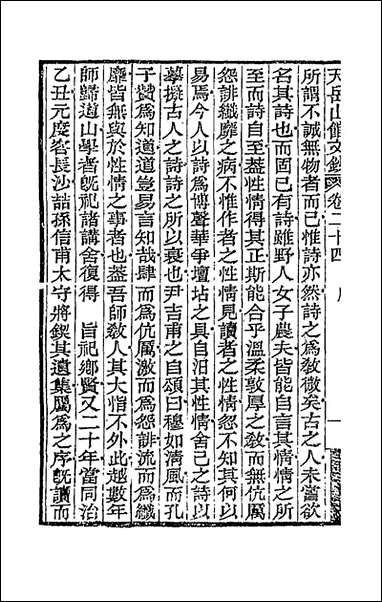 天岳山館文鈔 卷二十四 一
所謂不誠無物者而已惟詩亦然詩之爲敎微矣古之人未嘗欲
名其詩也而固已有詩雖野人女子農夫皆能自言其情情之所
至而詩自至葢性情得其正斯能合乎溫柔敦厚之敎而無伉厲
怨誹纖靡之病不惟作者之性情見讀者之性情怨不知其何以
易焉今人以詩爲博聲華爭壇坫之具自汨其性情舍己之詩以
摹擬古人之詩詩之所以衰也尹吉甫之自頌曰穆如淸風而孔
子贊爲知道道豈易言知哉肆而爲伉厲激而爲怨誹流而爲纖
靡皆無與於性情之事者也葢吾師敎人其大恉不外此越數年
師歸道山學者旣祀諸講舍復得 旨祀鄉賢又二十年當同治
乙丑元度客長沙喆孫信甫太守將鋟其遺集屬爲之序旣讀而